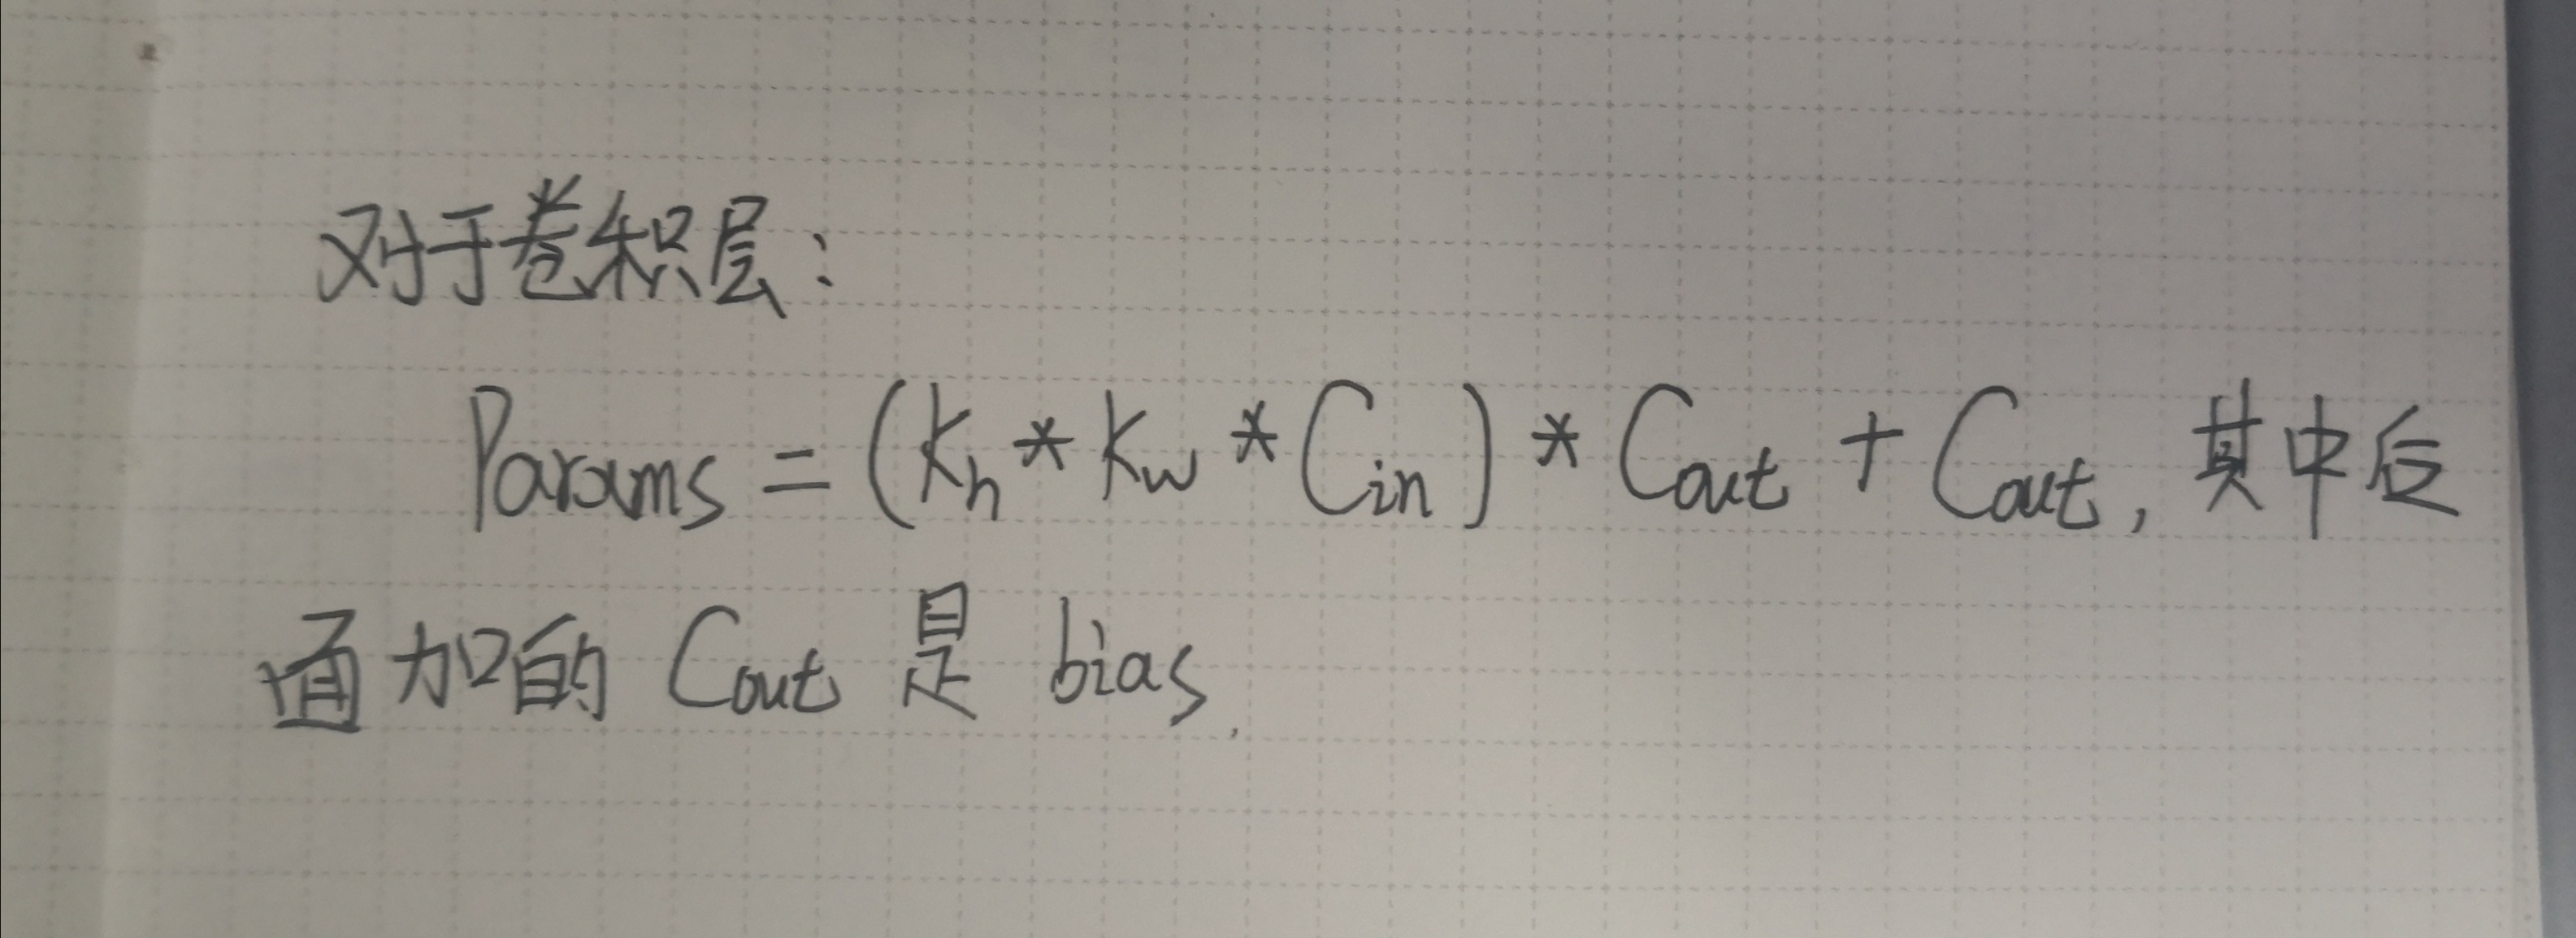 对于卷积层：
Params = (Kh * Kw * Cin) * Cout + Cout, 其中后
面加的 Cout 是 bias.